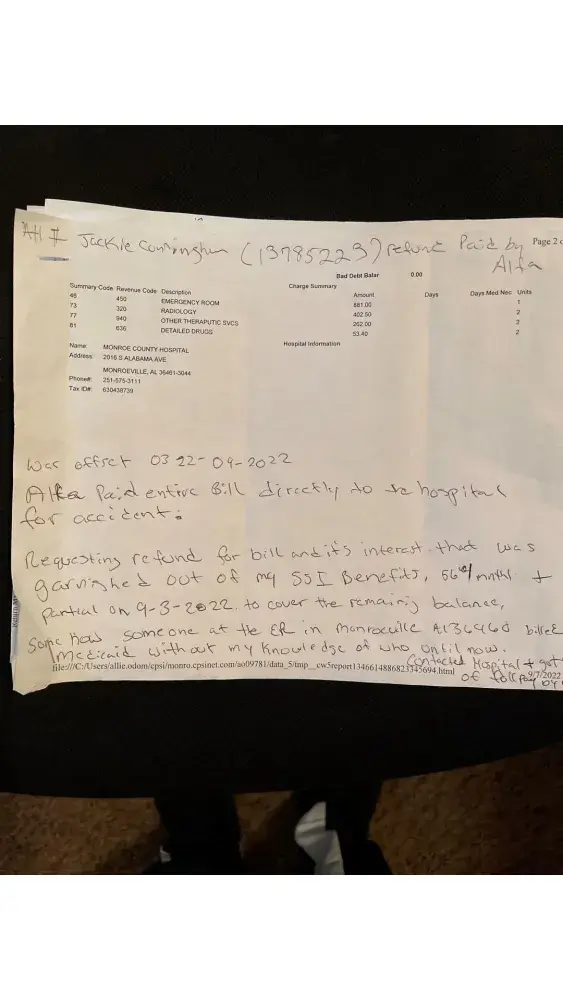 Att # Jackie Cunningham (13785223) refund Paid by Alfa
Page 2 o
Bad Debt Balar 0.00
Charge Summary
Summary Code Revenue Code Description Amount Days Days Med Nec Units
46 450 EMERGENCY ROOM 881.00 1
73 320 RADIOLOGY 402.50 2
77 940 OTHER THERAPUTIC SVCS 262.00 2
81 636 DETAILED DRUGS 53.40 2
Hospital Information
Name: MONROE COUNTY HOSPITAL
Address: 2016 S ALABAMA AVE
MONROEVILLE, AL 36461-3044
Phone#: 251-575-3111
Tax ID#: 630438739
was offset 03 22-04-2022
Alfa Paid entire Bill directly to the hospital
for accident.
Requesting refund for bill and it's interest that was
garnished out of my SSI Benefits, 56 /month +
partial on 9-3-2022 to cover the remaining balance,
Some how someone at the ER in Monroeville Al 36460 billed
Medicaid without my knowledge of who until now.
Contacted Hospital + got
file:///C:/Users/allie.odom/cpsi/monro.cpsinet.com/ao09781/data_5/tmp__cw5report1346614886823345694.html
9/7/2022
of full pay by